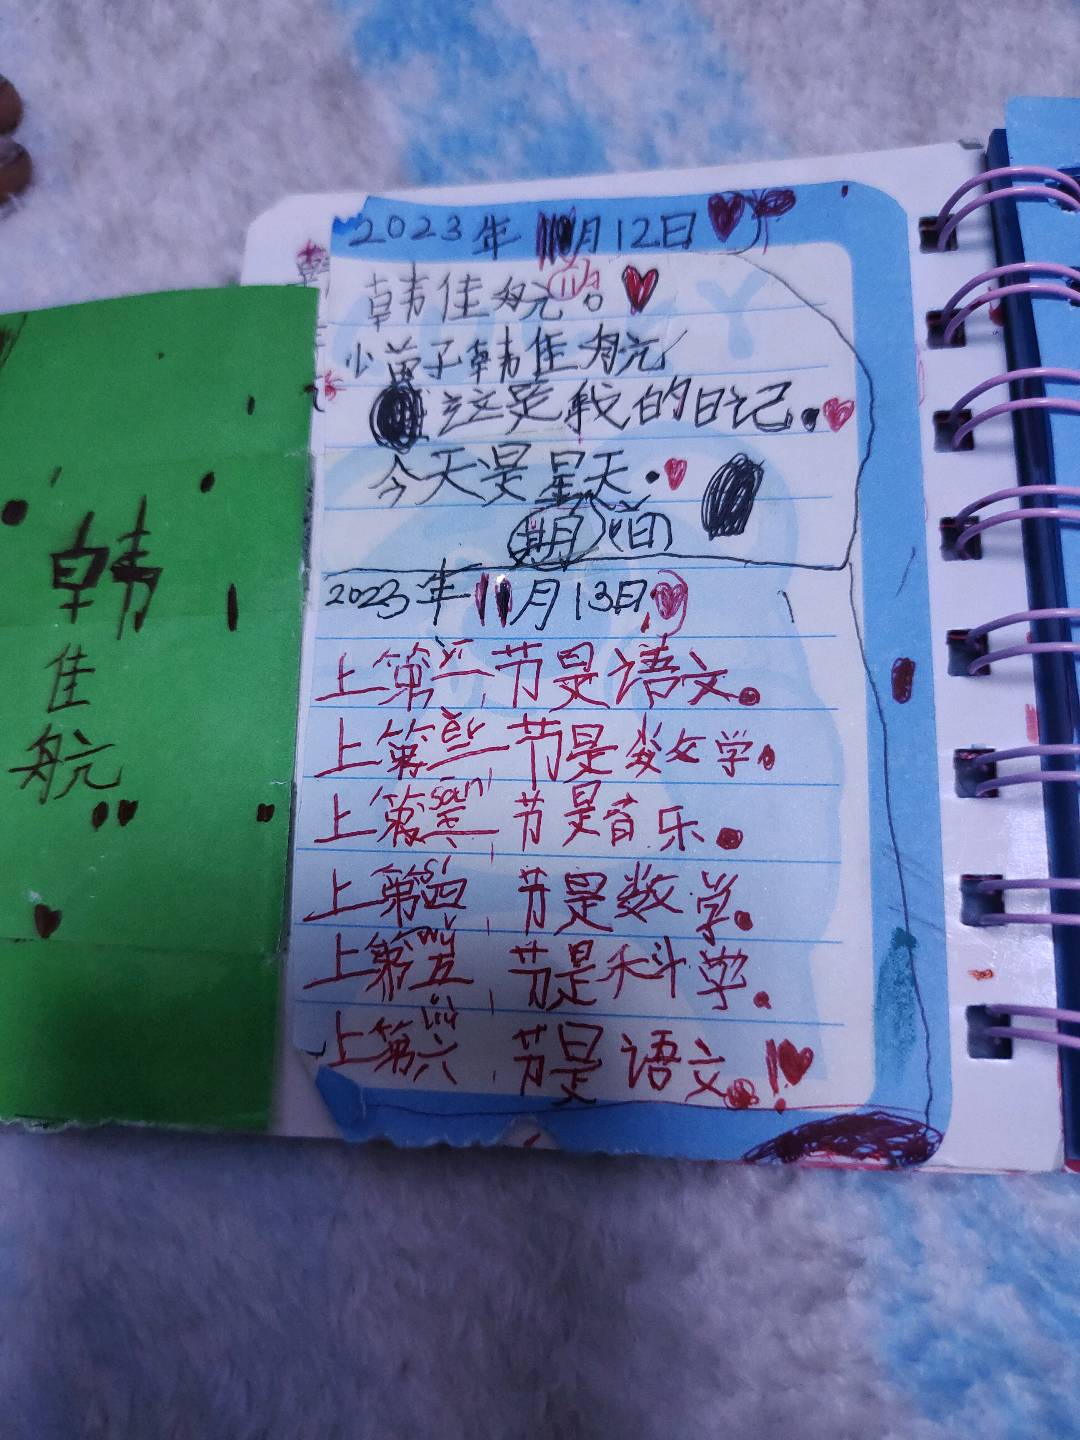 韩
佳
航
2023年11月12日
韩佳航。
11月
小苗子韩佳航
这是我的日记.
今天是星天.
期(日)
2023年11月13日
上第一节是语文。
yī
上第二节是数学.
èr
上第三节是音乐.
sān
上第四节是数学.
sì
上第五节是禾斗学.
wǔ
上第六节是语文。!
liù